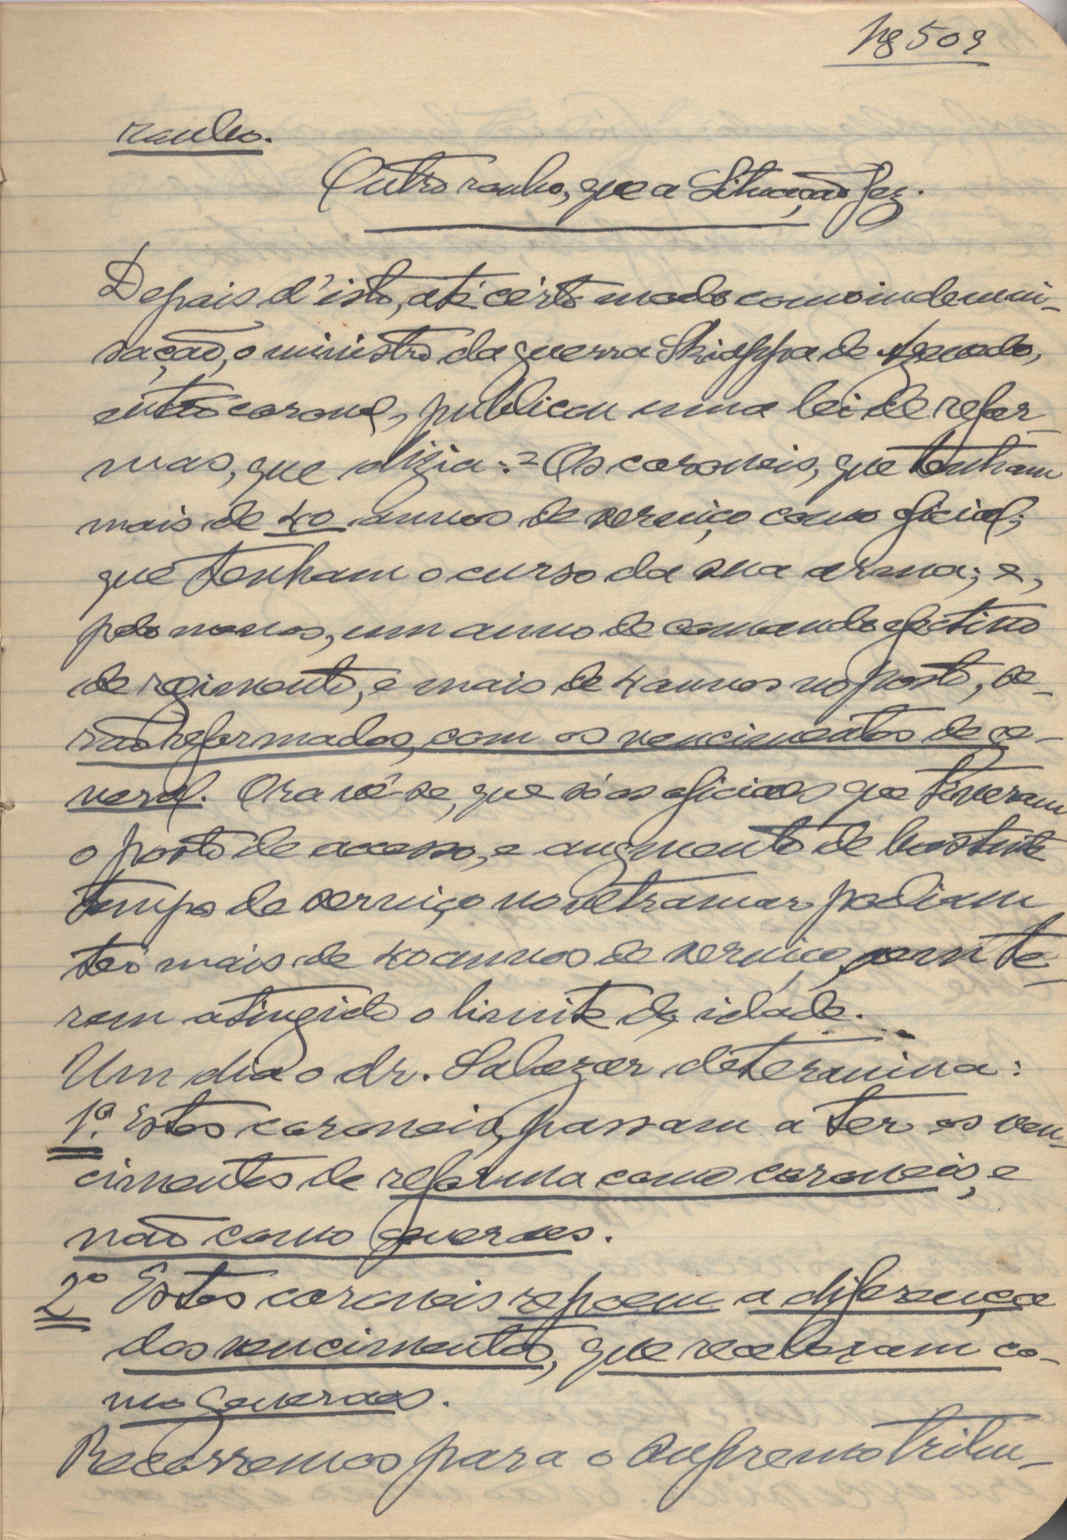 pg 509
roubo.
Outro roubo, que a Situação fez.
Depois d'isto, até cérto modo como indemni-
sação, o ministro da guerra Shiappa de Azevedo,
então coronel, publicou uma lei de refor-
mas, que dizia: = Os coroneis, que tenham
mais de 40 annos de serviço como oficial;
que tenham o curso da sua arma; e,
pelo menos, um anno de comando efectivo
de regimento, e mais de 4 annos no posto, se-
rão reformados, com os vencimentos de ge-
neral. Ora vê-se, que só os oficiaes que tiveram
o posto de acesso, e augmento de bastante
tempo de serviço no ultramar podiam
ter mais de 40 annos de serviço, sem te-
rem atingido o limite de idade.
Um dia o dr. Salazar determina:
1º. Estes coroneis, passam a ter os ven-
cimentos de reforma como coroneis, e
não como generaes.
2º Estes coroneis repoem a diferença
dos vencimentos, que receberam co-
mo Generaes.
Recorremos para o Supremo Tribu-